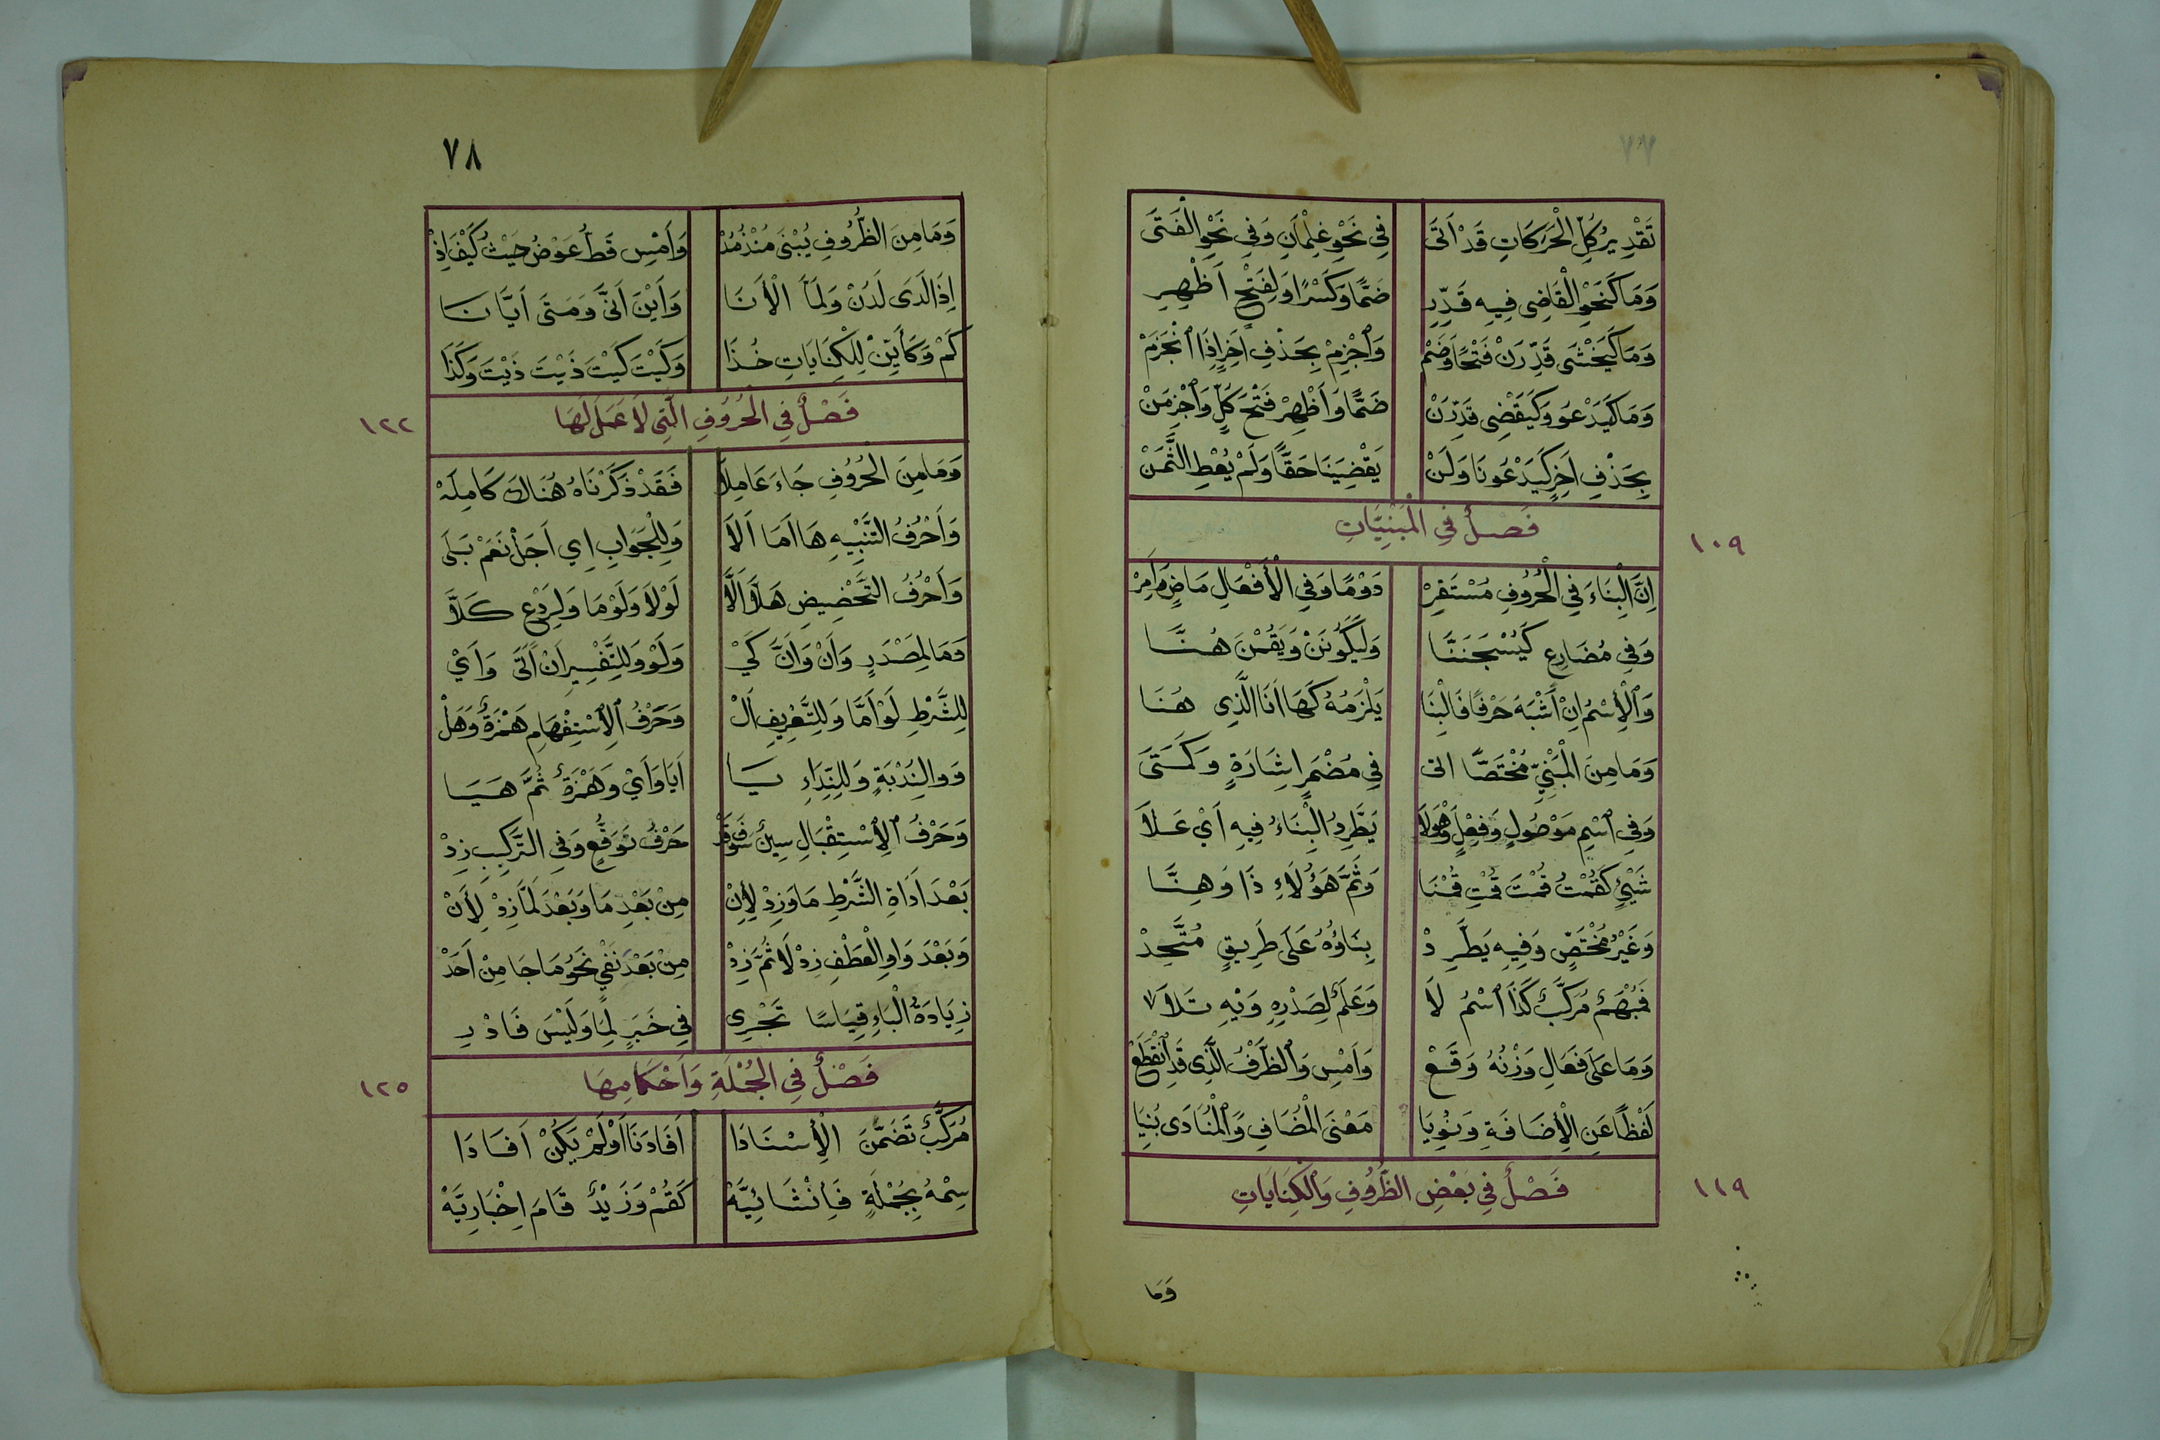 ٧٧
تَقْدِيرُ كُلِّ الْحَرَكَاتِ قَدْ اَتَى فِي نَحْوِ غِلْمَانِ وَفِي نَحْوِ الْفَتَى
وَمَا كَنَحْوِ الْقَاضِي فِيهِ قَدِّرِ ضَمًّا وَكَسْرًا وَلِفَتْحٍ اَظْهِرِ
وَمَا كَيَخْشَى قَدِّرَنْ فَتْحًا وَضَمْ وَاجْزِمْ بِحَذْفِ اَخِرٍ اِذَا انْجَزَمْ
وَمَا كَيَدْعُو وَكَيَقْضِي قَدِّرَنْ ضَمًّا وَاَظْهِرْ فَتْحَ كُلٍّ وَاجْزِمَنْ
بِحَذْفِ اَخِرٍ كَيَدْعُونَا وَلَنْ يَقْضِيَنَا حَقًّا وَلَمْ يُعْطِ الثَّمَنْ
فَصْلٌ فِي الْمَبْنِيَّاتِ
١٠٩
اِنَّ الْبِنَاءَ فِي الْحُرُوفِ مُسْتَقِرْ دَوْمًا وَفِي الْاَفْعَالِ مَاضٍ وَاَمِرْ
وَفِي مُضَارِعٍ كَيُسْجَنَنَّا وَلَيَكُونَنْ وَيَقُمْنَ هُنَّا
وَالْاِسْمُ اِنْ اَشْبَهَ حَرْفًا فَالْبِنَا يَلْزَمُهُ كَهَا اَنَا الَّذِي هُنَا
وَمَا مِنَ الْمَبْنِيِّ مُخْتَصًّا اتى فِي مُضْمَرٍ اِشَارَةٍ وَكَمَتَى
وَفِي اسْمِ مَوْصُولٍ وَفِعْلٍ وَهْوَلَا يَطَّرِدُ الْبِنَاءُ فِيهِ اَيْ عَلَا
شَيْئٍ كَقُمْتُ قُمْتَ قُمْتِ قُمْنَا وَثَمَّ هَؤُلَاءِ ذَا وَهِنَّا
وَغَيْرُ مُخْتَصٍّ وَفِيهِ يَطَّرِدْ بِنَاؤُهُ عَلَى طَرِيقٍ مُتَّحِدْ
فَمُبْهَمٌ مُرَكَّبٌ كَذَا اسْمُ لَا وَعَلَمٌ لِصَدْرِهِ وَيْهِ تَلَا
وَمَا عَلَى فَعَالِ وَزْنُهُ وَقَعْ وَاَمْسِ وَالظَّرْفُ الَّذِي قَدِ انْقَطَعْ
لَفْظًا عَنِ الْاِضَافَةِ وَنُوِيَا مَعْنَى الْمُضَافِ وَالْمُنَادَى بُنِيَا
فَصْلٌ فِي بَعْضِ الظُّرُوفِ وَالْكِنَايَاتِ
١١٩
وَمَا
٧٨
وَمَا مِنَ الظُّرُوفِ يُبْنَى مُنْذُ مُذْ وَاَمْسِ قَطُّ عَوْضُ حَيْثُ كَيْفَ اِذْ
اِذَا لَدَى لَدُنْ وَلَمَّا الْاَنَا وَاَيْنَ اَنَّى وَمَتَى اَيَّانَا
كَمْ وَكَأَيِّنْ لِلْكِنَايَاتِ خُذَا وَكَيْتَ كَيْتَ ذَيْتَ ذَيْتَ وَكَذَا
فَصْلٌ فِي الْحُرُوفِ الَّتِي لَا عَمَلَ لَهَا
١٢٢
وَمَا مِنَ الْحُرُوفِ جَاءَ عَامِلَا فَقَدْ ذَكَرْنَاهُ هُنَاكَ كَامِلَهْ
وَاَحْرُفُ التَّنْبِيهِ هَا اَمَا اَلَا وَلِلْجَوَابِ اِي اَجَلْ نَعَمْ بَلَى
وَاَحْرُفُ التَّحْضِيضِ هَلَّا اَلَّا لَوْلَا وَلَوْمَا وَلِرَدْعٍ كَلَّا
وَمَا لِمَصْدَرٍ وَاَنْ وَاَنَّ كَيْ وَلَوْ وَلِلتَّفْسِيرِ اَنْ اَتَى وَاَيْ
لِلشَّرْطِ لَوْ اَمَّا وَلِلتَّعْرِيفِ اَلْ وَحَرْفُ الِاسْتِفْهَامِ هَمْزَةٌ وَهَلْ
وَوا لِنُدْبَةٍ وَلِلنِّدَاءِ يَا اَيَا وَاَيْ وَهَمْزَةٌ ثُمَّ هَيَا
وَحَرْفُ الِاسْتِقْبَالِ سِينٌ سَوْفَ قَدْ حَرْفُ تَوَقُّعٍ وَفِي التَّرْكِيبِ زِدْ
بَعْدَ اَدَاةِ الشَّرْطِ مَا وَزِدْ لِاِنْ مِنْ بَعْدِ مَا وَبَعْدَ لَمَّا زِدْ لِاَنْ
وَبَعْدَ وَاوِ الْعَطْفِ زِدْ لَا ثُمَّ زِدْ مِنْ بَعْدَ نَفْيٍ نَحْوُ مَا جَا مِنْ اَحَدْ
زِيَادَةُ الْبَاءِ قِيَاسًا تَجْرِي فِي خَبَرٍ لِمَا وَلَيْسَ فَادْرِ
فَصْلٌ فِي الْجُمْلَةِ وَاَحْكَامِهَا
١٢٥
مُرَكَّبٌ تَضَمَّنَ الْاِسْنَادَا اَفَادَنَا اَوْ لَمْ يَكُنْ اَفَادَا
سِمْهُ بِجُمْلَةٍ فَاِنْشَائِيَّهْ كَقُمْ وَزَيْدٌ قَامَ اِخْبَارِيَّهْ